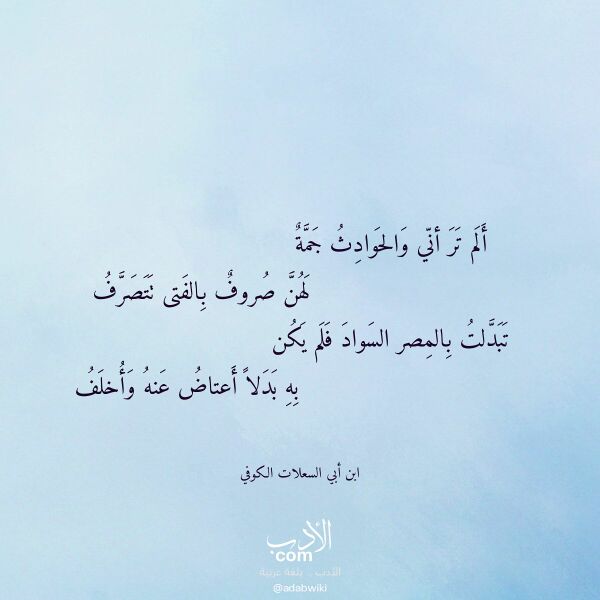 أَلَم تَرَ أنّي وَالحَوادِثُ جَمَّةٌ
لَهُنَّ صُروفٌ بِالفَتى تَتَصَرَّفُ
تَبَدَّلتُ بِالمِصر السَوادَ فَلَم يَكُن
بِهِ بَدَلاً أَعتاضُ عَنهُ وَأُخلَفُ
ابن أبي السعلات الكوفي
الأدب
com
الأدب .. بلغة عربية
@adabwiki